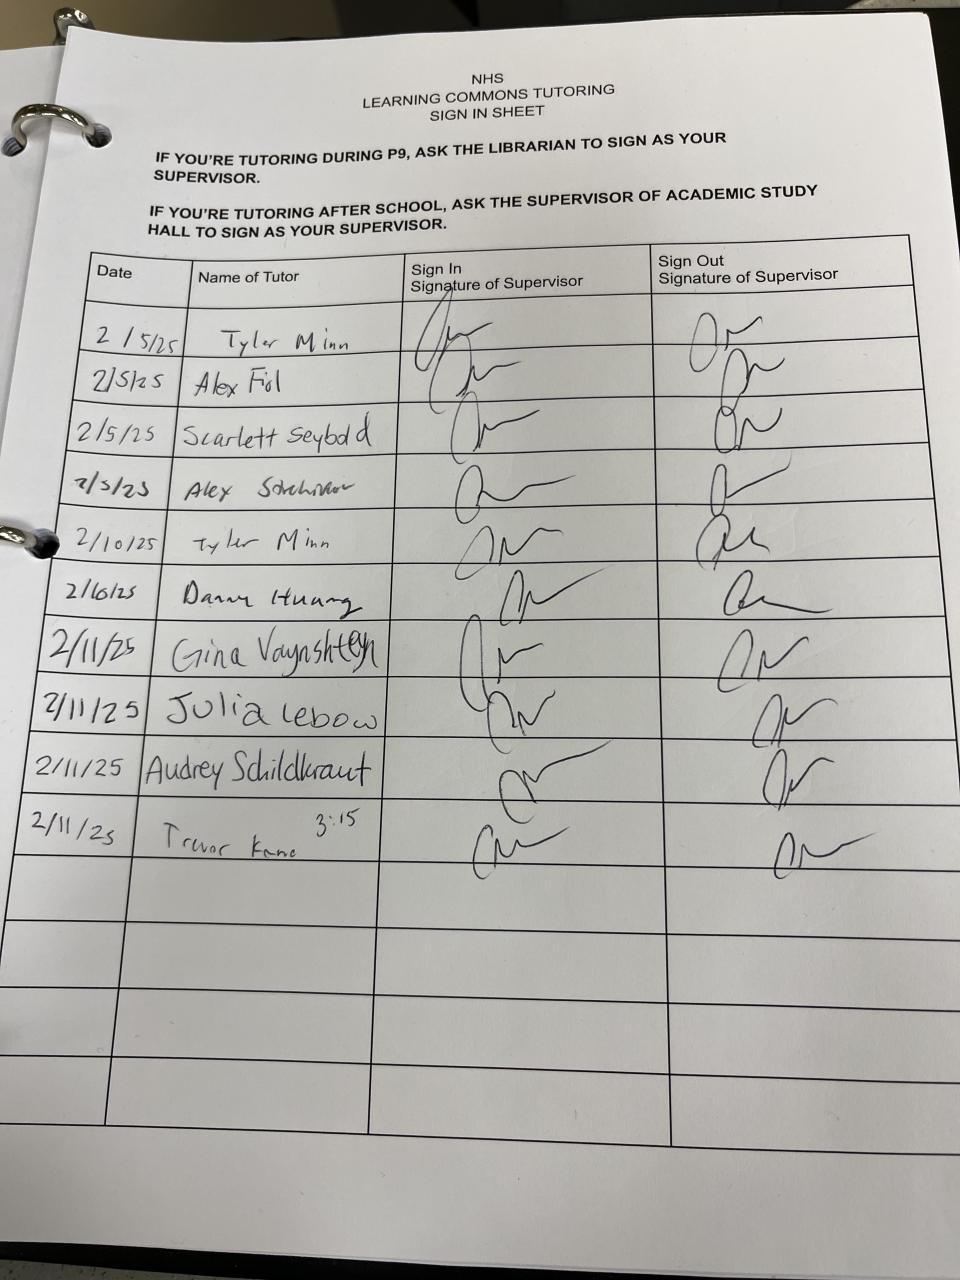 NHS
LEARNING COMMONS TUTORING
SIGN IN SHEET
IF YOU'RE TUTORING DURING P9, ASK THE LIBRARIAN TO SIGN AS YOUR
SUPERVISOR.
IF YOU'RE TUTORING AFTER SCHOOL, ASK THE SUPERVISOR OF ACADEMIC STUDY
HALL TO SIGN AS YOUR SUPERVISOR.
Date Name of Tutor Sign In Sign Out
Signature of Supervisor Signature of Supervisor
2/5/25 Tyler Minn
2/5/25 Alex
2/5/25 Scarlett Seybold
2/5/25 Alex
2/10/25 Tyler Minn
Danny Huang
2/11/25 Gina Vaynshteyn
2/11/25 Julia Lebow
2/11/25 Audrey Schildkraut
2/11/25 Trevor Kane 3:15